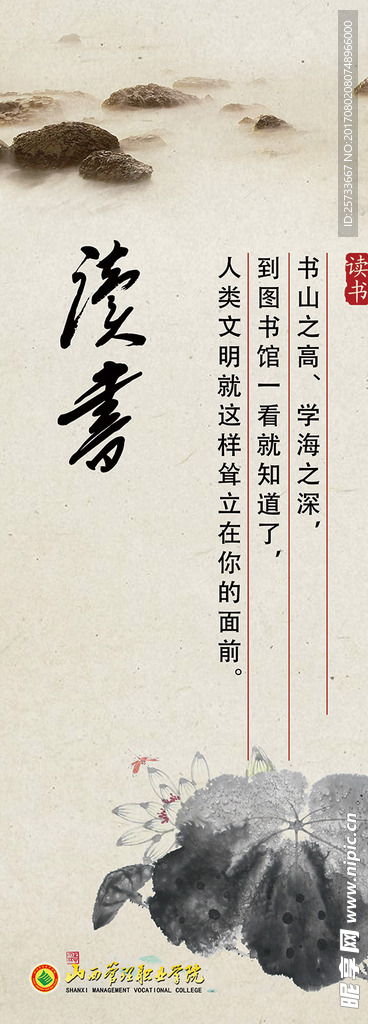 读书
书山之高、学海之深，
到图书馆一看就知道了，
人类文明就这样耸立在你的面前。
读書
山西管理职业学院
SHANXI MANAGEMENT VOCATIONAL COLLEGE
ID:25733667 NO:20170802080748966000
昵享网 www.nipic.cn